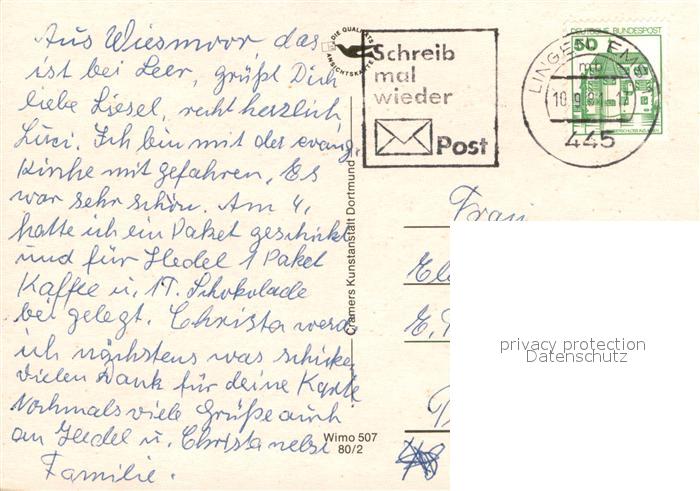 Aus Wiesmoor das
ist bei Leer, grüßt Dich
liebe Liesel, recht herzlich
Luci. Ich bin mit der evang.
Kirche mit gefahren. Es
war sehr schön. Am 4.
hatte ich ein Paket geschickt
und für Hedel 1 Paket
Kaffee u. 1 T. Schokolade
bei gelegt. Christa werd
ich nächstens was schicke,
vielen Dank für deine Karte
Nochmals viele Grüße auch
an Hedel u. Christa nebst
Familie.
DIE QUALITÄTS
ANSICHTSKARTE
Cramers Kunstanstalt Dortmund
Wimo 507
80/2
Schreib
mal
wieder
Post
DEUTSCHE BUNDESPOST
50
LINGEN, EMS
mb
445
Frau
privacy protection
Datenschutz